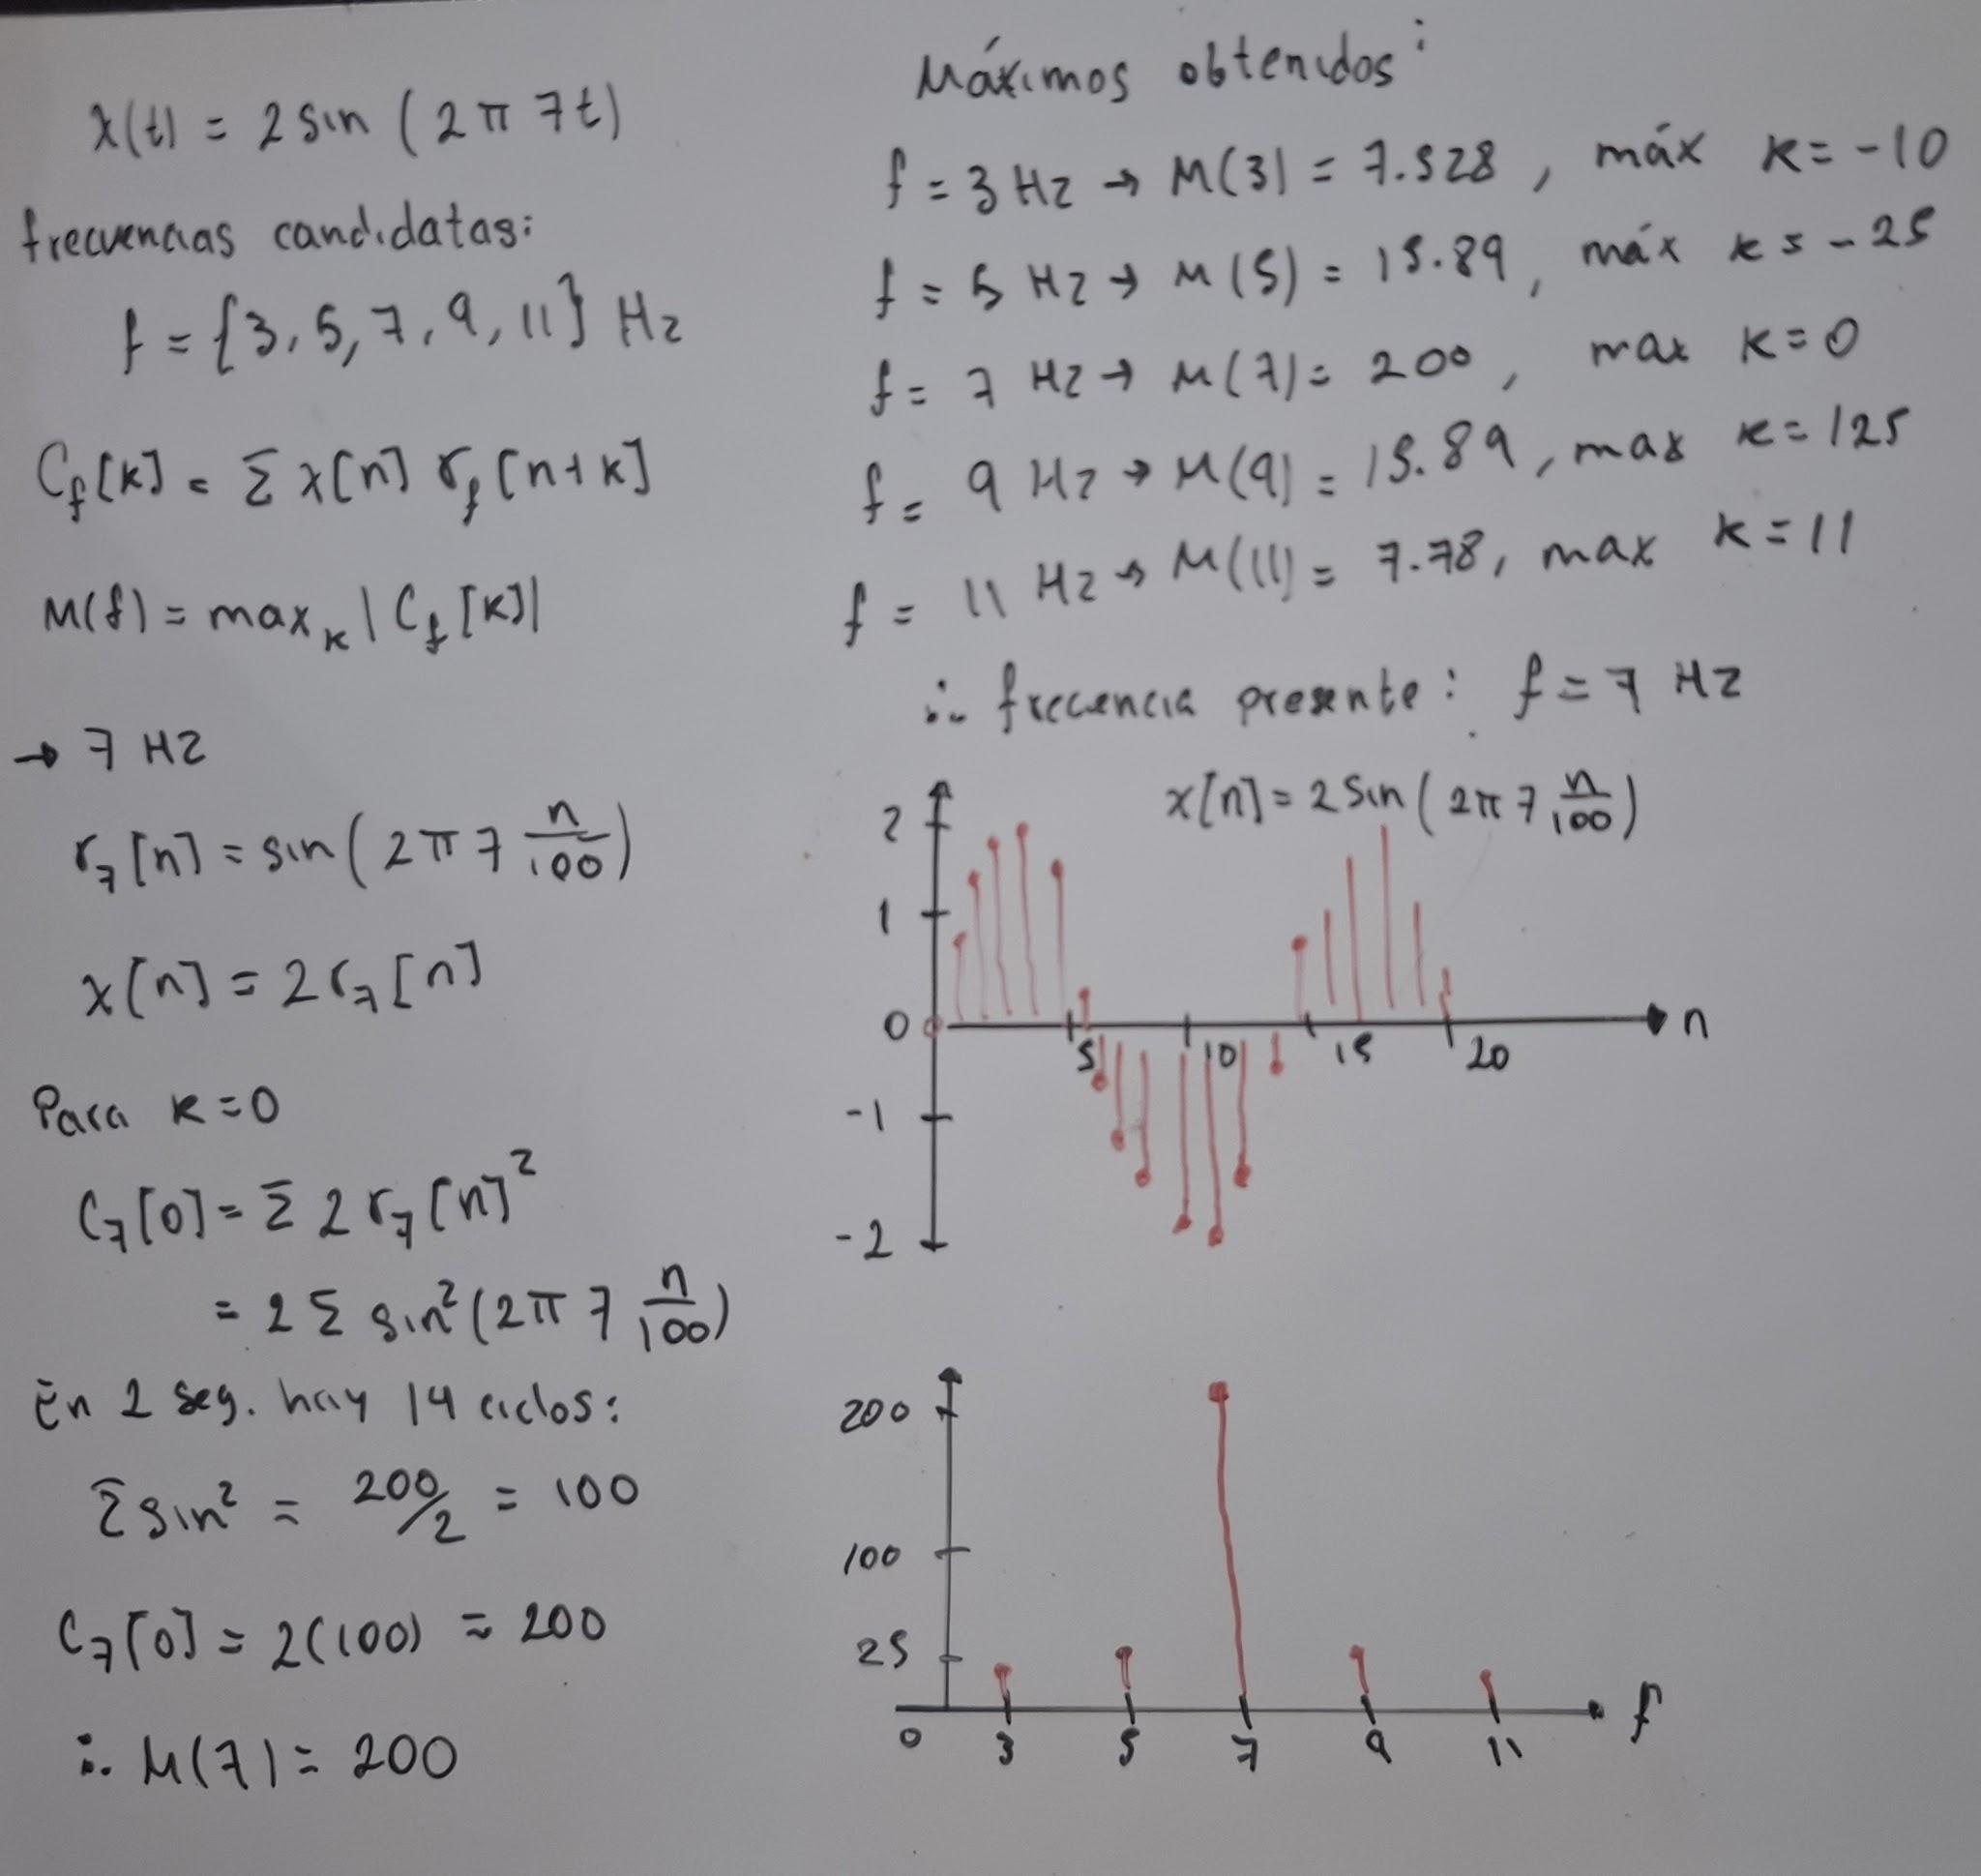 x(t) = 2 sin (2π 7t)
frecuencias candidatas:
f = {3, 5, 7, 9, 11} Hz
C_f[k] = Σ x[n] r_f[n+k]
M(f) = max_k | C_f[k] |
→ 7 Hz
r_7[n] = sin(2π 7 n/100)
x[n] = 2 r_7[n]
Para k = 0
C_7[0] = Σ 2 r_7[n]²
= 2 Σ sin²(2π 7 n/100)
En 2 seg. hay 14 ciclos:
Σ sin² = 200/2 = 100
C_7[0] = 2(100) = 200
∴ M(7) = 200
Máximos obtenidos:
f = 3 Hz → M(3) = 7.528, máx k = -10
f = 5 Hz → M(5) = 15.89, máx k = -25
f = 7 Hz → M(7) = 200, max k = 0
f = 9 Hz → M(9) = 15.89, max k = 125
f = 11 Hz → M(11) = 7.78, max k = 11
∴ frecuencia presente: f = 7 Hz
x[n] = 2 sin(2π 7 n/100)
2
1
0
-1
-2
5 10 15 20 n
200
100
25
0 3 5 7 9 11 f